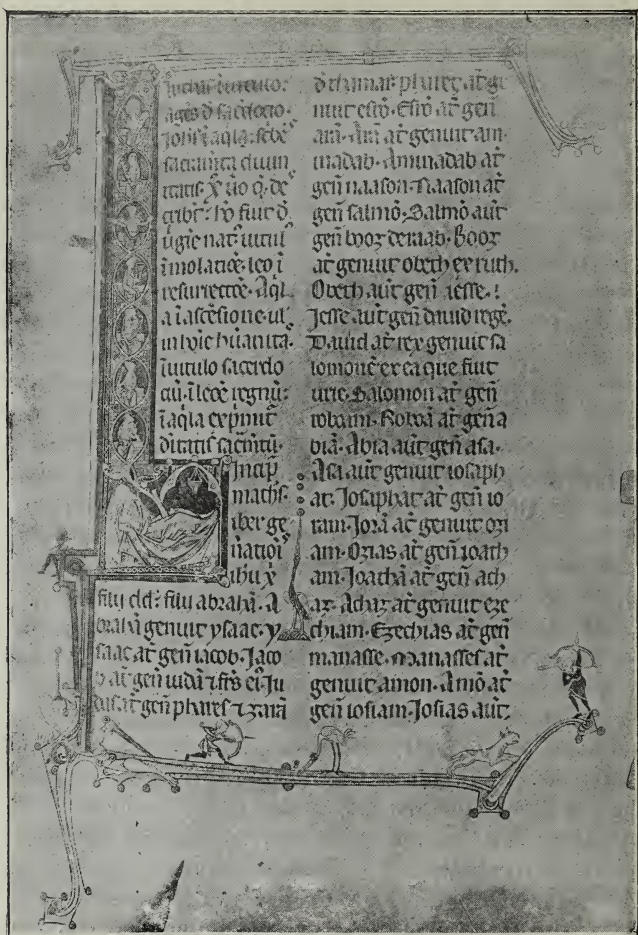 lucas in uitulo.
agēs d̄ sacerdocio.
sacram̄ta diuin
itatis. x̄ uo q̄ de
c̄bit. ho fiut d̄
ūgie nat. uitul
ī molatiōe. leo ī
resurrectōe. aq̄l
a ī ascēsione. ul
in hoīe hūanita.
ī uitulo sacerdo
ciū. ī leōe regnū.
ī aq̄la exp̄mit̄
diītatis sacm̄tū.
Incip̄
math̄s.
Liber ge
ñatiōi
ihu x̄
filij dd. filij abrahā. A
brahā genuit ysaac. y
saac at̄ geñ iacob. Jaco
b at̄ geñ iudā ⁊ frs̄ ei. Ju
das at̄ geñ phares ⁊ zarā
d̄ thamar. phareȝ at̄ ge
nuit esrō. Esrō at̄ geñ
arā. Arā at̄ genuit am
inadab. Aminadab at̄
geñ naason. Naason at̄
geñ salmō. Salmō aut̄
geñ booȝ de raab. Booȝ
at̄ genuit obeth ex ruth.
Obeth aut̄ geñ iesse.
Jesse aut̄ geñ dauid regē.
Dauid at̄ rex genuit sa
lomonē ex ea que fuit
urie. Salomon at̄ geñ
roboam. Roboā at̄ geñ a
biā. Abia aut̄ geñ asa.
Asa aut̄ genuit iosaph
at. Josaphat at̄ geñ io
ram. Jorā at̄ genuit oȝi
am. Oȝias at̄ geñ ioath
am. Joathā at̄ geñ ach
aȝ. Achaȝ at̄ genuit eȝe
chiam. Eȝechias at̄ geñ
manasse. Manasses at̄
genuit amon. Amō at̄
geñ iosiam. Josias aut̄